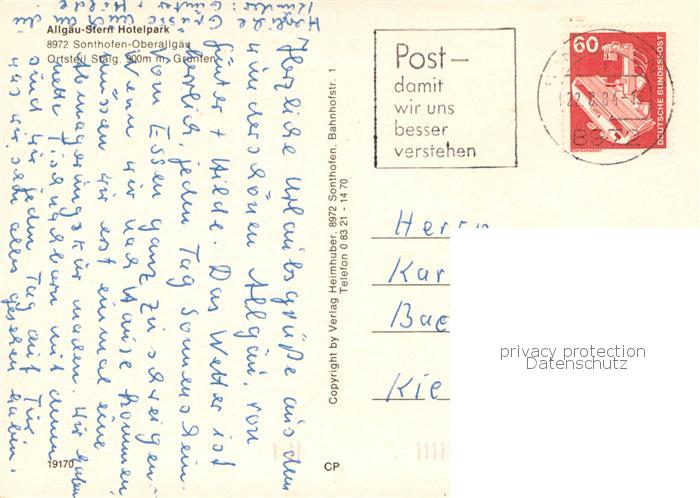 Allgäu-Stern Hotelpark
8972 Sonthofen-Oberallgäu
Ortsteil Staig, 900m m. Grünten
Herzliche Urlaubsgrüße aus dem
wunderschönen Allgäu, von
Günter + Hilde. Das Wetter ist
herrlich, jeden Tag Sonnenschein.
Vom Essen ganz zu schweigen.
Wenn wir nach Hause kommen
müssen wir erst einmal eine
Abmagerungskur machen. Wir haben
nette Tischnachbarn mit denen
sind wir jeden Tag auf Tür
was wir sehn alles gesehen haben.
19170
Copyright by Verlag Heimhuber, 8972 Sonthofen, Bahnhofstr. 1
Telefon 0 83 21 - 14 70
CP
Post –
damit
wir uns
besser
verstehen
60
DEUTSCHE BUNDESPOST
Herrn
Kar
Bac
Kie
privacy protection
Datenschutz